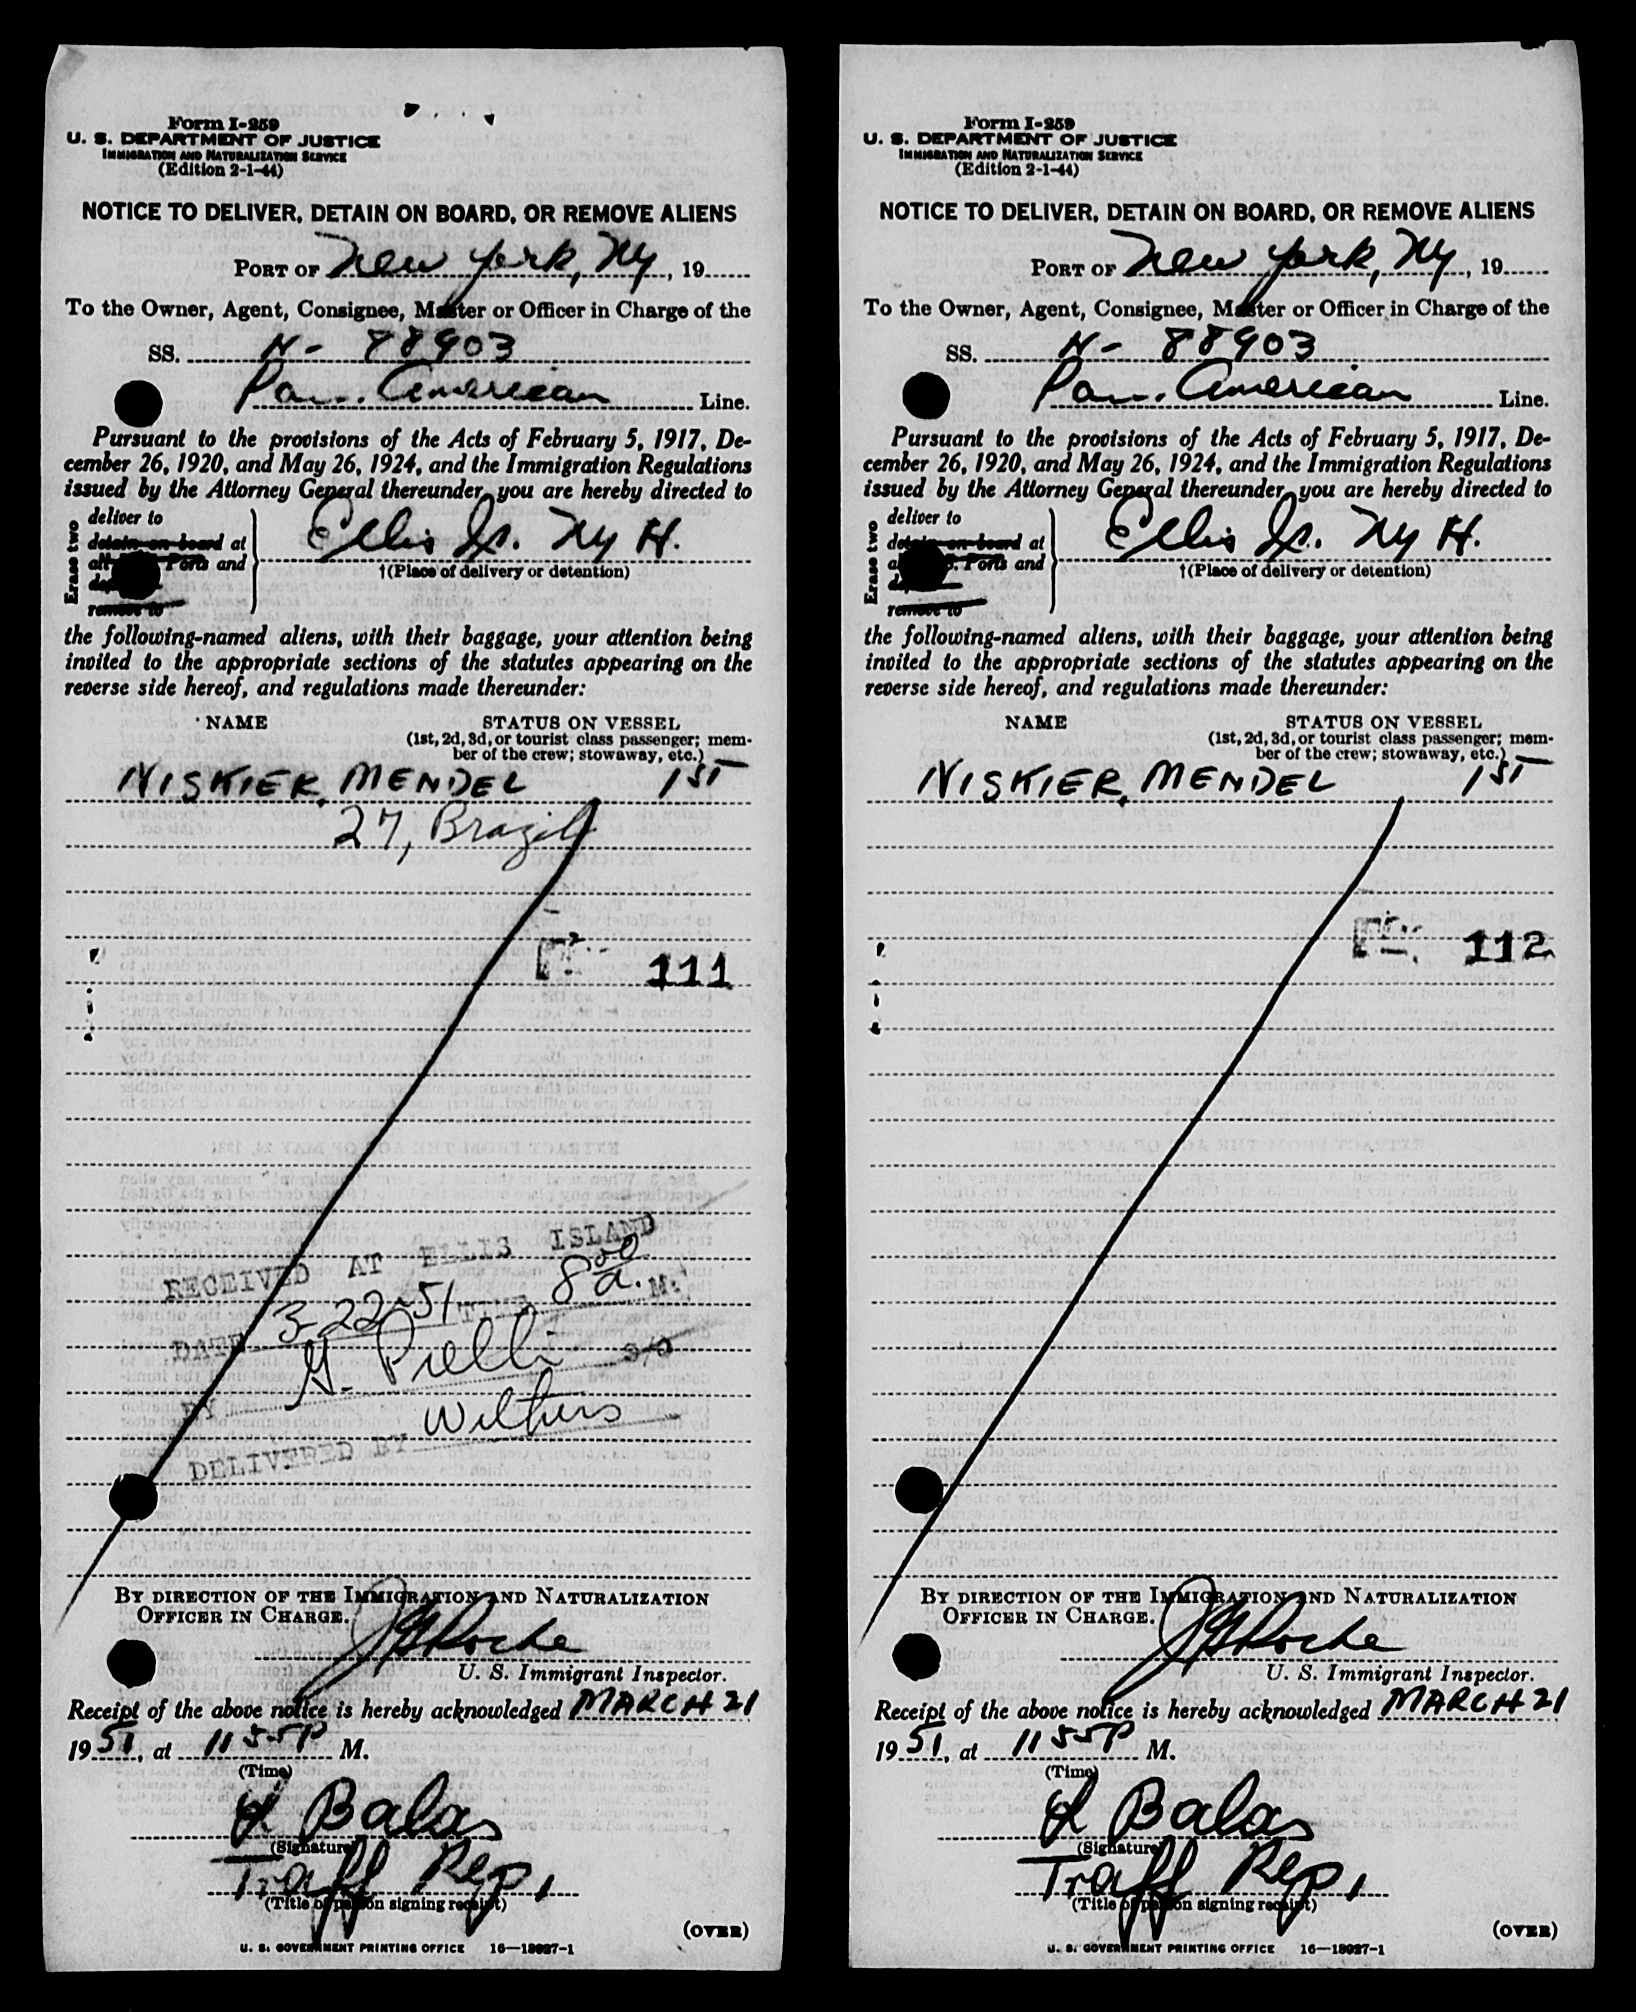 Form I-259
U. S. DEPARTMENT OF JUSTICE
IMMIGRATION AND NATURALIZATION SERVICE
(Edition 2-1-44)
NOTICE TO DELIVER, DETAIN ON BOARD, OR REMOVE ALIENS
PORT OF New York, NY, 19
To the Owner, Agent, Consignee, Master or Officer in Charge of the
SS. N- 88903
Pan. American Line.
Pursuant to the provisions of the Acts of February 5, 1917, De-
cember 26, 1920, and May 26, 1924, and the Immigration Regulations
issued by the Attorney General thereunder, you are hereby directed to
Erase two
deliver to
detain on board at
Ports and
remove to
Ellis Is. NY H.
†(Place of delivery or detention)
the following-named aliens, with their baggage, your attention being
invited to the appropriate sections of the statutes appearing on the
reverse side hereof, and regulations made thereunder:
NAME STATUS ON VESSEL
(1st, 2d, 3d, or tourist class passenger; mem-
ber of the crew; stowaway, etc.)
NISKIER, MENDEL 1ST
27, Brazil
111
RECEIVED AT ELLIS ISLAND
DATE 3-22-51 TIME 8 00 a. M.
BY S/O
DELIVERED BY
BY DIRECTION OF THE IMMIGRATION AND NATURALIZATION
OFFICER IN CHARGE.
Roche
U. S. Immigrant Inspector.
Receipt of the above notice is hereby acknowledged MARCH 21
1951, at 11 55P M.
(Time)
L Balas
(Signature)
Traff Rep.
(Title of person signing receipt)
(OVER)
U. S. GOVERNMENT PRINTING OFFICE 16—13027-1
Form I-259
U. S. DEPARTMENT OF JUSTICE
IMMIGRATION AND NATURALIZATION SERVICE
(Edition 2-1-44)
NOTICE TO DELIVER, DETAIN ON BOARD, OR REMOVE ALIENS
PORT OF New York, NY, 19
To the Owner, Agent, Consignee, Master or Officer in Charge of the
SS. N- 88903
Pan. American Line.
Pursuant to the provisions of the Acts of February 5, 1917, De-
cember 26, 1920, and May 26, 1924, and the Immigration Regulations
issued by the Attorney General thereunder, you are hereby directed to
Erase two
deliver to
detain on board at
Ports and
remove to
Ellis Is. NY H.
†(Place of delivery or detention)
the following-named aliens, with their baggage, your attention being
invited to the appropriate sections of the statutes appearing on the
reverse side hereof, and regulations made thereunder:
NAME STATUS ON VESSEL
(1st, 2d, 3d, or tourist class passenger; mem-
ber of the crew; stowaway, etc.)
NISKIER, MENDEL 1ST
112
BY DIRECTION OF THE IMMIGRATION AND NATURALIZATION
OFFICER IN CHARGE.
Roche
U. S. Immigrant Inspector.
Receipt of the above notice is hereby acknowledged MARCH 21
1951, at 11 55P M.
(Time)
L Balas
(Signature)
Traff Rep.
(Title of person signing receipt)
(OVER)
U. S. GOVERNMENT PRINTING OFFICE 16—13027-1